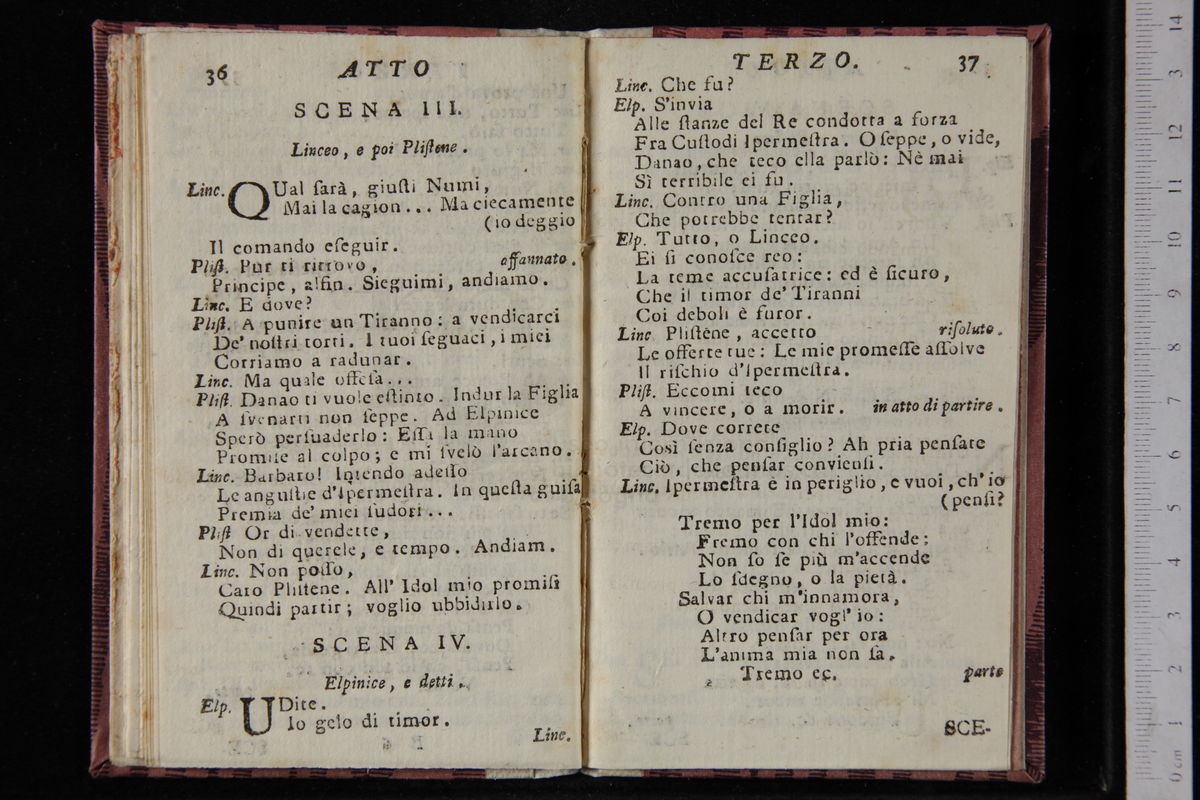 36 ATTO
SCENA III.
Linceo, e poi Pliſtene.
Linc. QUal ſarà, giuſti Numi,
Mai la cagion... Ma ciecamente
(io deggio
Il comando eſeguir.
Pliſt. Pur ti ritrovo, affannato.
Principe, alfin. Sieguimi, andiamo.
Linc. E dove?
Pliſt. A punire un Tiranno: a vendicarci
De' noſtri torti. I tuoi ſeguaci, i miei
Corriamo a radunar.
Linc. Ma quale offeſa...
Pliſt. Danao ti vuole eſtinto. Indur la Figlia
A ſvenarti non ſeppe. Ad Elpinice
Sperò perſuaderlo: Eſſa la mano
Promiſe al colpo; e mi ſvelò l'arcano.
Linc. Barbaro! Intendo adeſſo
Le anguſtie d'Ipermeſtra. In queſta guiſa
Premia de' miei ſudori...
Pliſt Or di vendette,
Non di querele, e tempo. Andiam.
Linc. Non poſſo,
Caro Pliſtene. All' Idol mio promiſi
Quindi partir; voglio ubbidirlo.
SCENA IV.
Elpinice, e detti.
Elp. UDite.
Io gelo di timor.
Linc.
TERZO. 37
Linc. Che fu?
Elp. S'invia
Alle ſtanze del Re condotta a forza
Fra Cuſtodi Ipermeſtra. O ſeppe, o vide,
Danao, che teco ella parlò: Nè mai
Sì terribile ei fu.
Linc. Contro una Figlia,
Che potrebbe tentar?
Elp. Tutto, o Linceo.
Ei ſi conoſce reo:
La teme accuſatrice: ed è ſicuro,
Che il timor de' Tiranni
Coi deboli è furor.
Linc Pliſtene, accetto riſoluto.
Le offerte tue: Le mie promeſſe aſſolve
Il riſchio d'Ipermeſtra.
Pliſt. Eccomi teco
A vincere, o a morir. in atto di partire.
Elp. Dove correte
Così ſenza conſiglio? Ah pria penſate
Ciò, che penſar convienſi.
Linc. Ipermeſtra è in periglio, e vuoi, ch' io
(penſi?
Tremo per l'Idol mio:
Fremo con chi l'offende:
Non ſo ſe più m'accende
Lo ſdegno, o la pietà.
Salvar chi m'innamora,
O vendicar vogl' io:
Altro penſar per ora
L'anima mia non ſa.
Tremo ec. parte
SCE-
0 cm 1 2 3 4 5 6 7 8 9 10 11 12 3 14